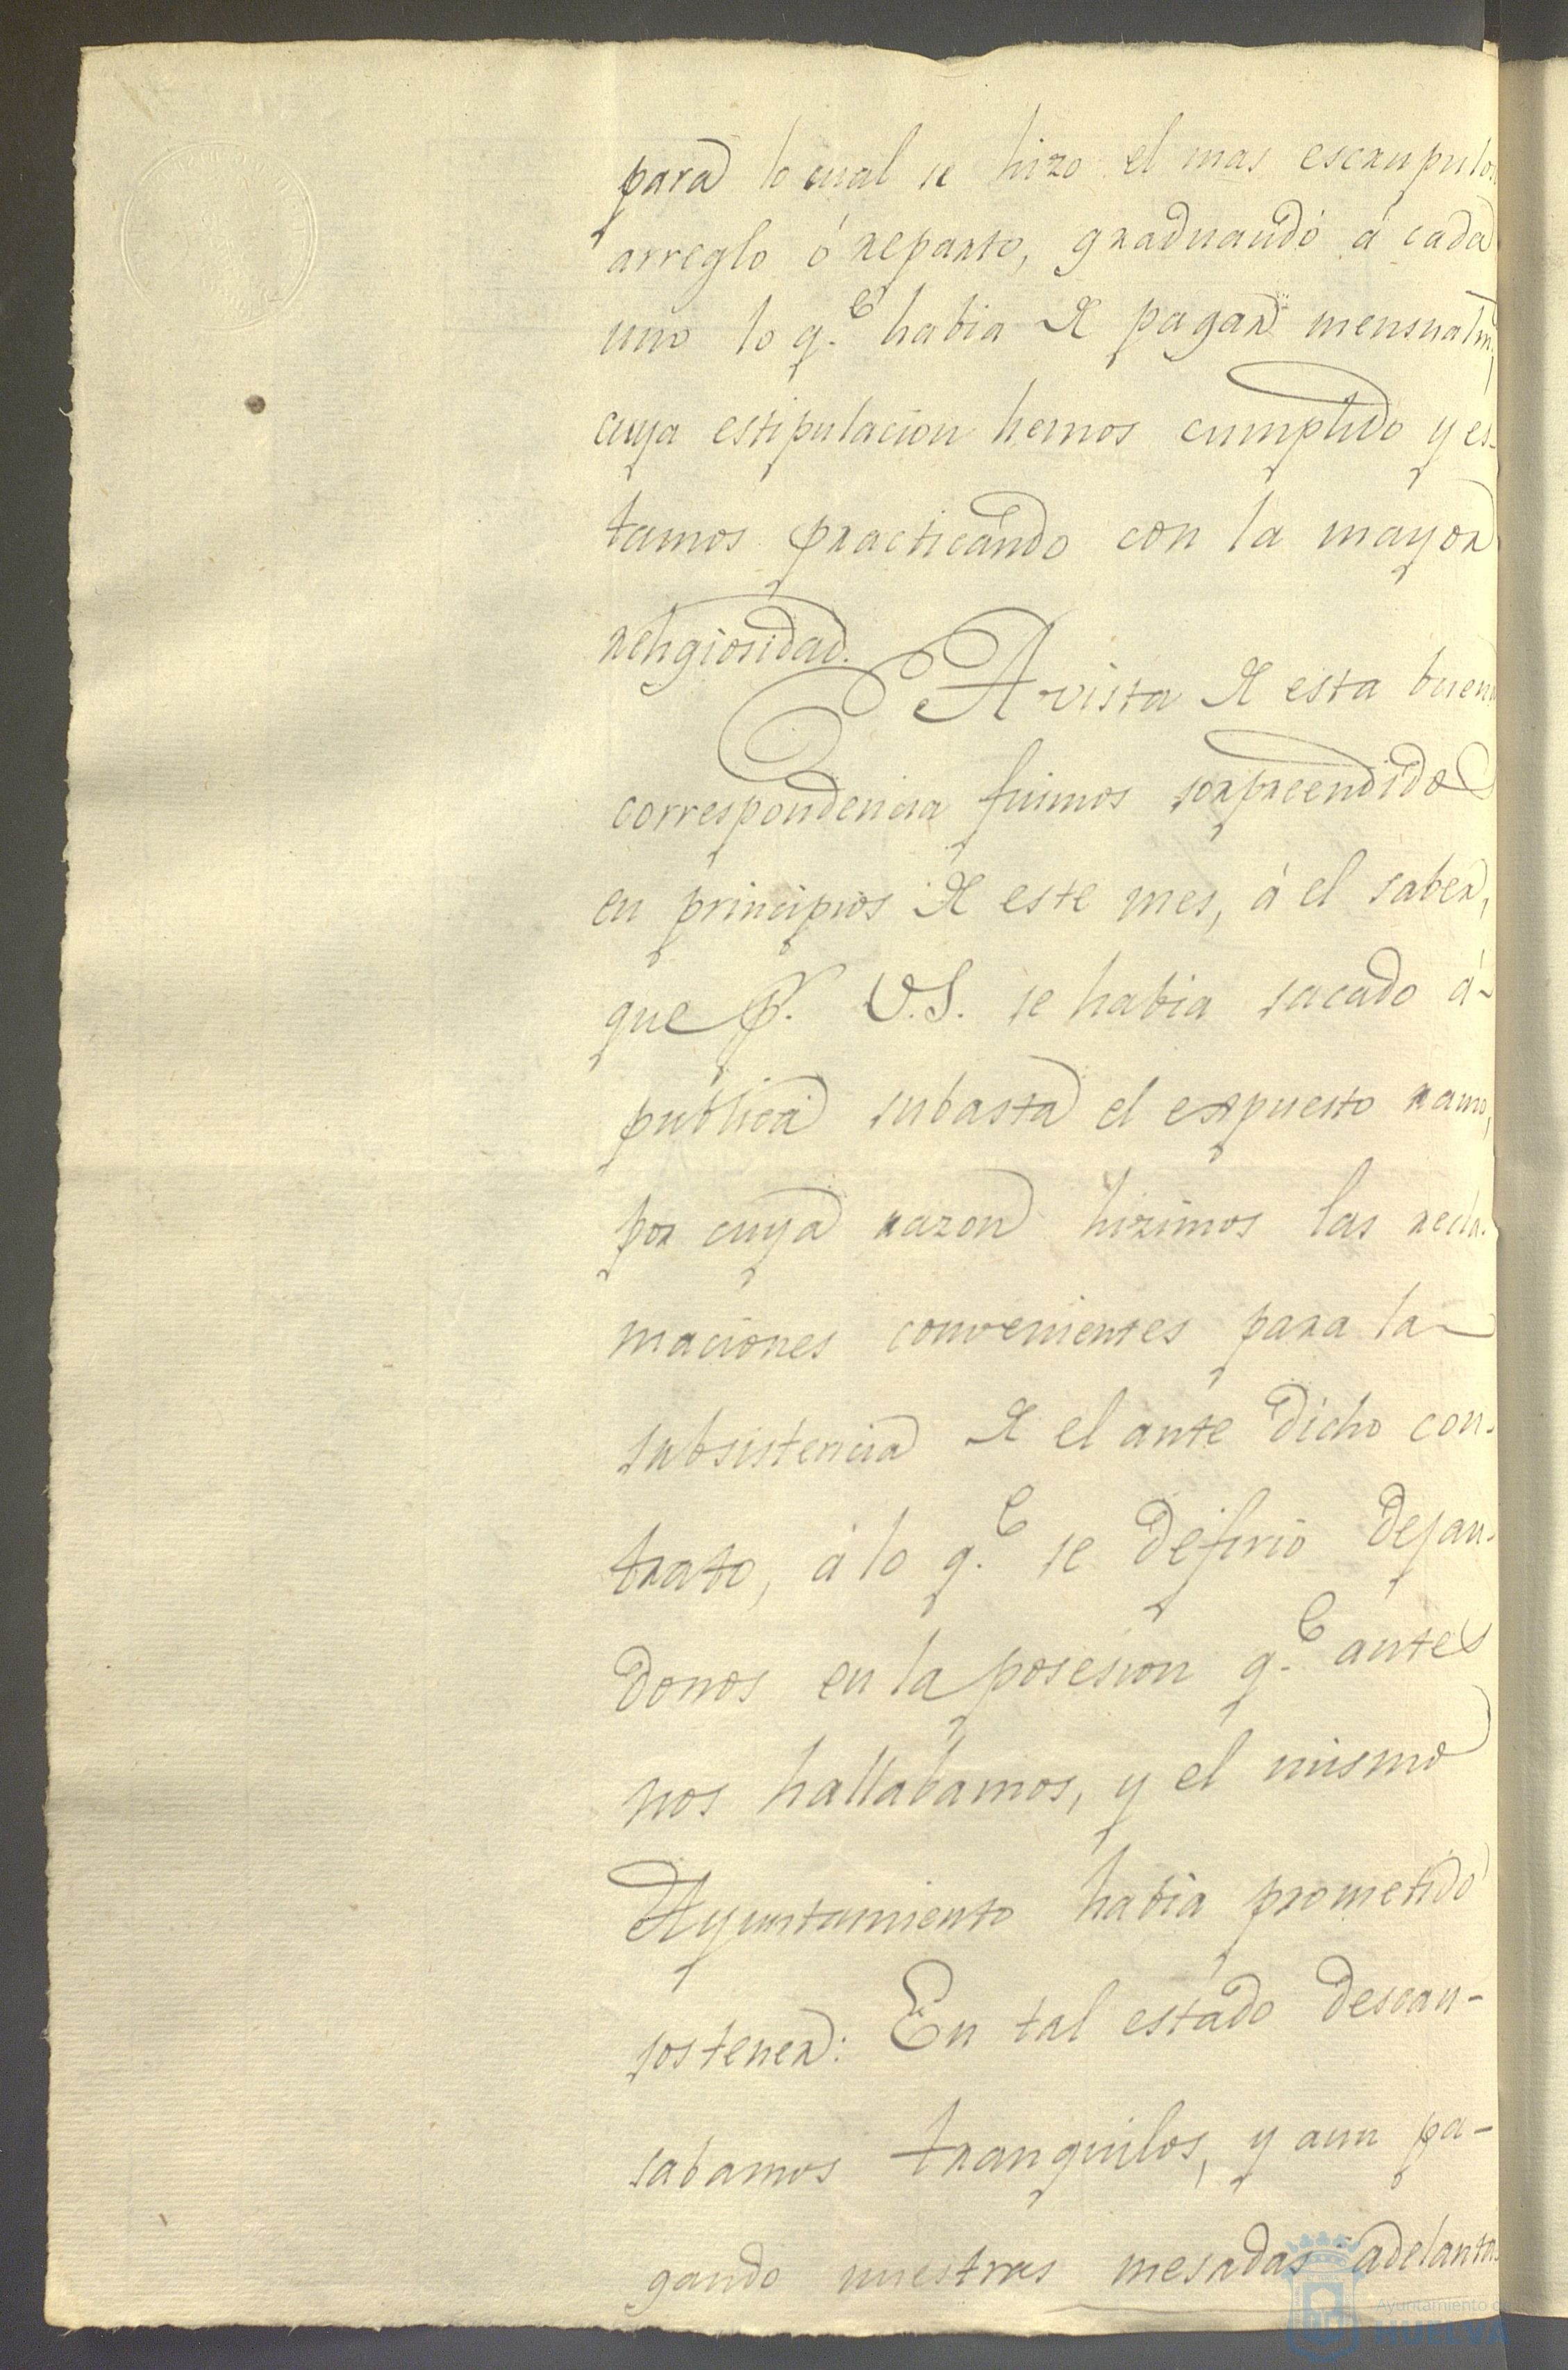 para lo cual se hizo el mas escrupulos
arreglo ó reparto, graduando á cada
uno lo q.e habia de pagar mensualm.
cuya estipulacion hemos cumplido y es-
tamos practicando con la mayor
religiosidad.
A vista de esta buena
correspondencia fuimos sorpreendidos
en principios de este mes, á el saber,
que p.r V.S. se habia sacado á-
publica subasta el expuesto ramo,
por cuya razon hizimos las recla-
maciones convenientes para la
subsistencia de el ante dicho con-
trato, á lo q.e se defirió dejan-
donos en la posesion q.e antes
nos hallabamos, y el mismo
Ayuntamiento habia prometido
sostener: En tal estado descan-
sabamos tranquilos, y aun pa-
gando nuestras mesadas adelantas
Ayuntamiento de
HUELVA